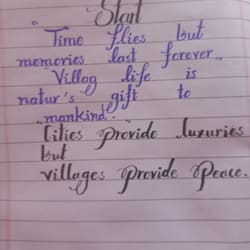 Start
"Time flies but
memories last forever,,
"Villag life is
natur's gift to
"mankind."
Cities Provide luxuries
but
villages Provide Peace.